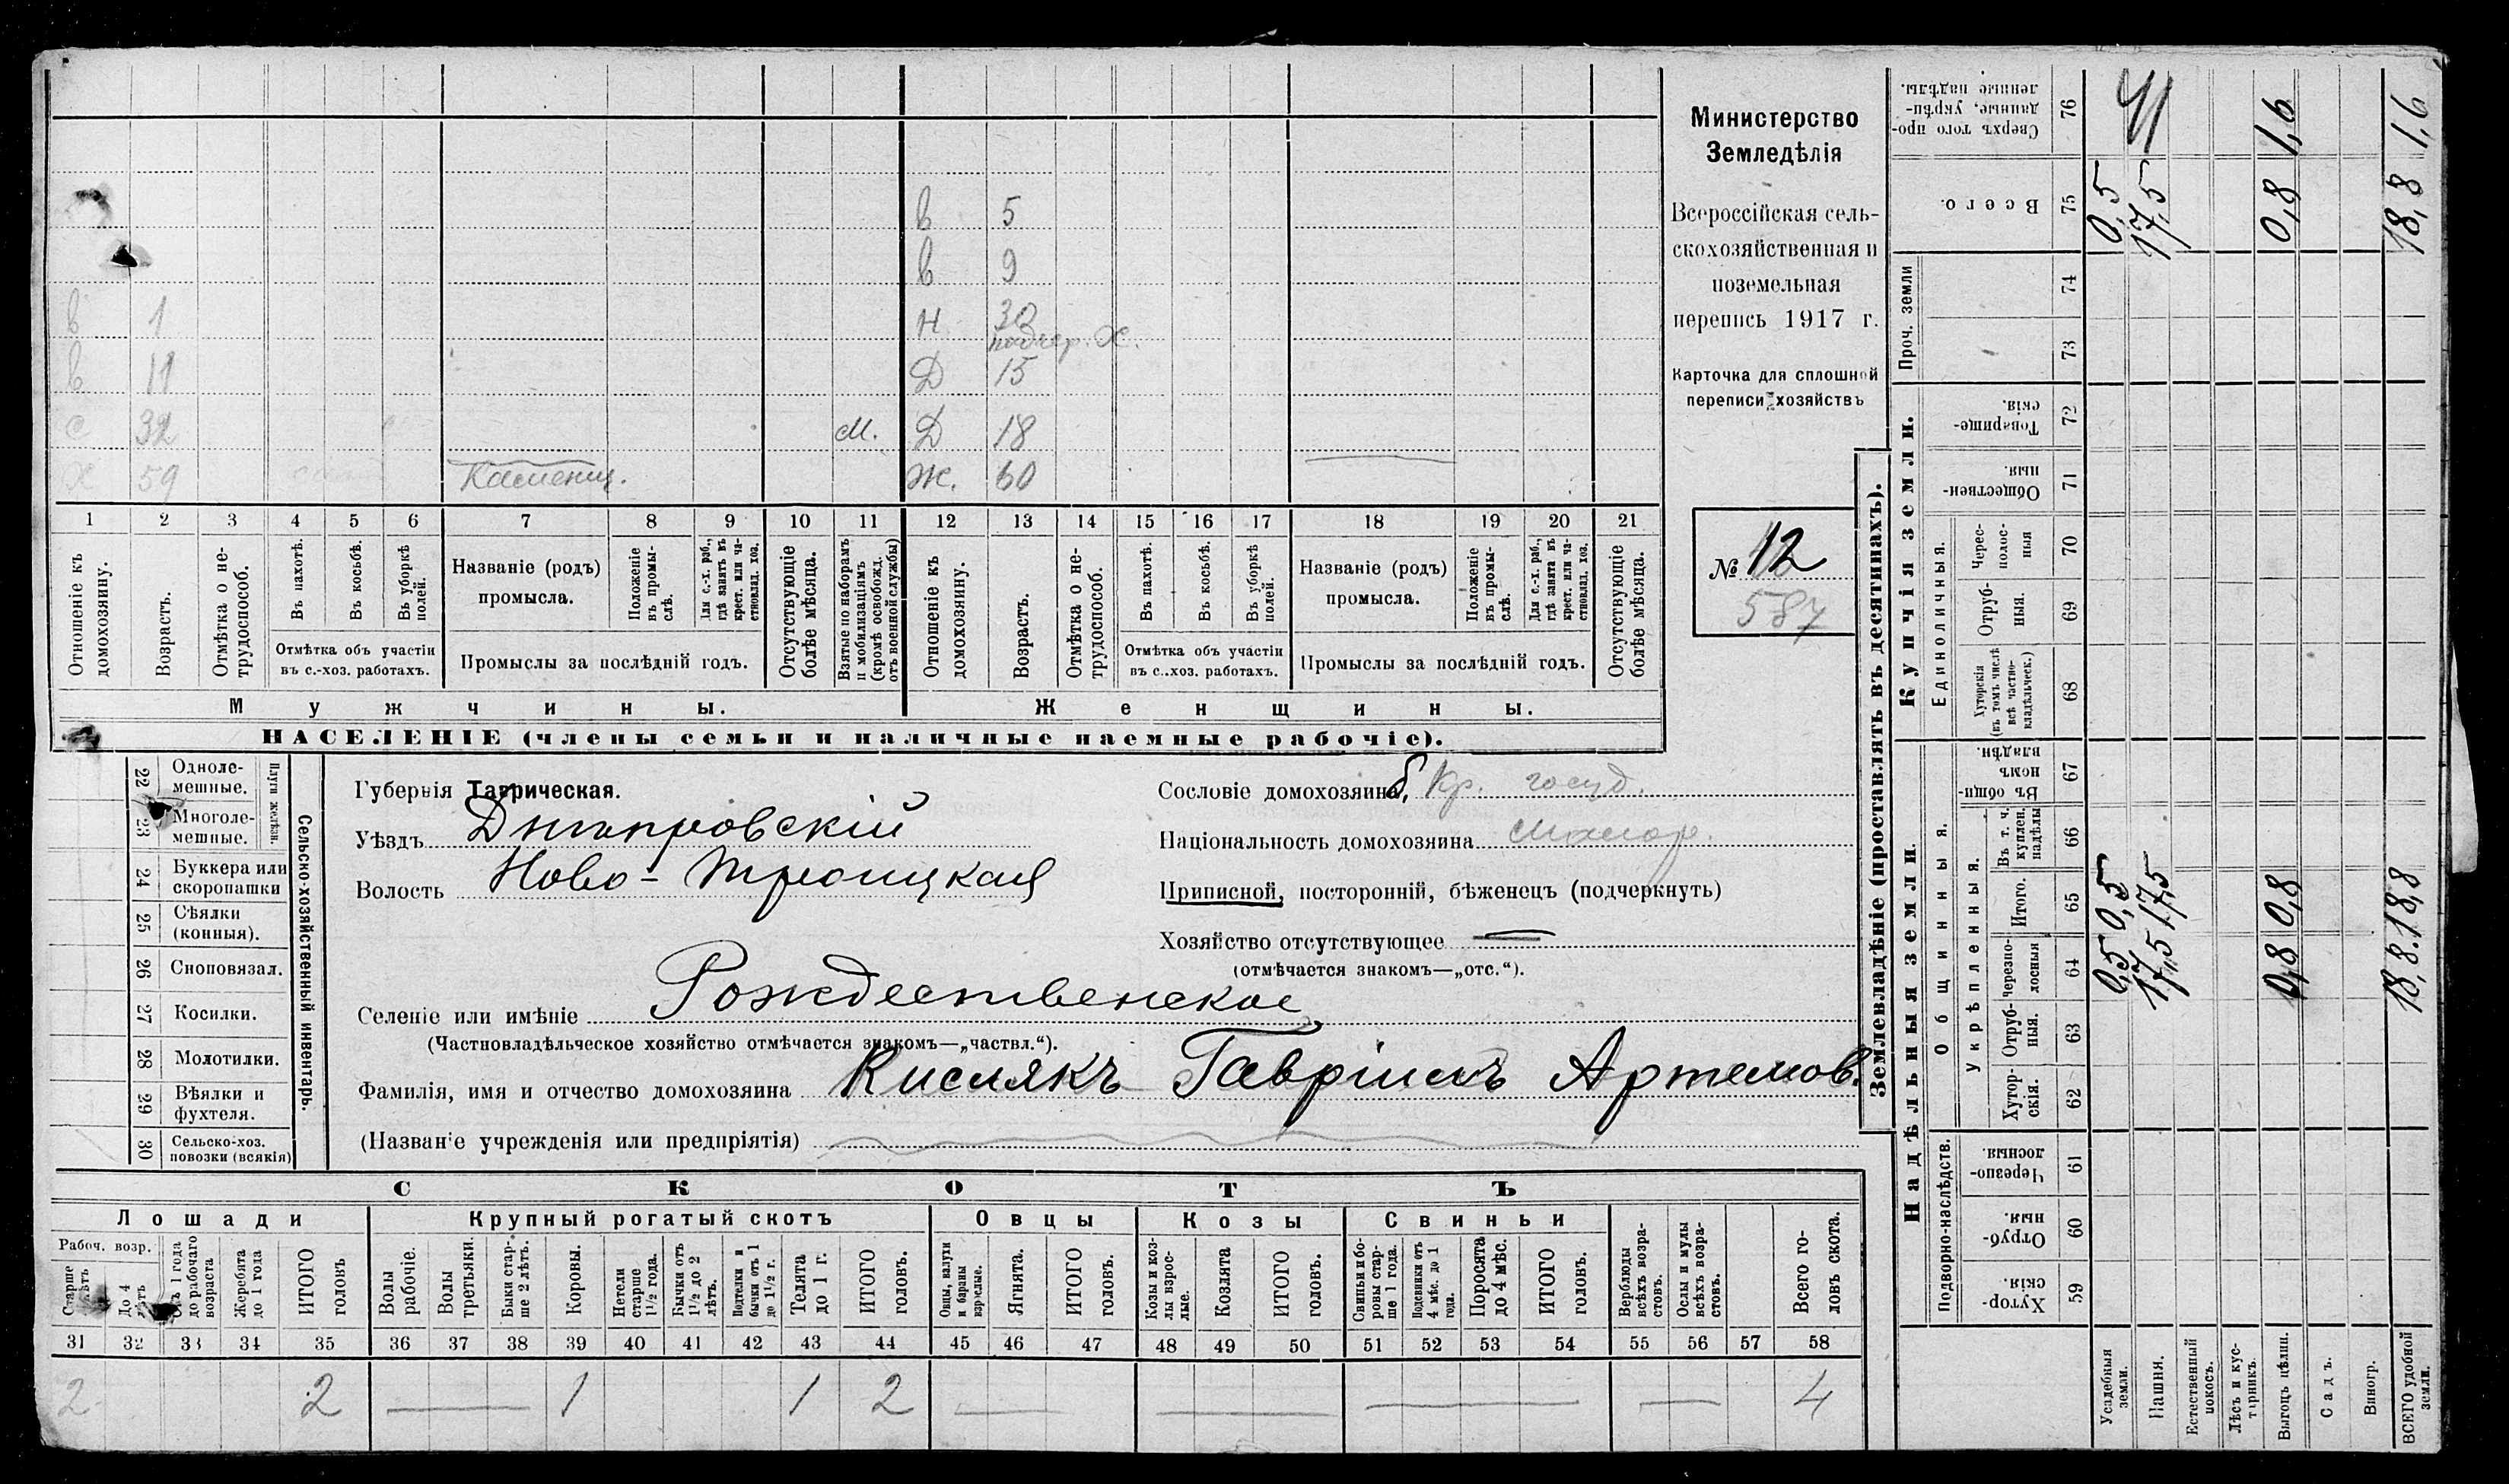 в 5
в 9
в 1 Н 30
подчер. Х.
в 11 Д 15
с 32 М. Д 18
Х 59 Каменщ. Ж. 60
1 2 3 4 5 6 7 8 9 10 11 12 13 14 15 16 17 18 19 20 21
Отношеніе къ домохозяину.
Возрастъ.
Отмѣтка о не-трудоспособ.
Въ пахотѣ.
Въ косьбѣ.
Въ уборкѣ полей.
Отмѣтка объ участіи
въ с.-хоз. работахъ.
Названіе (родъ)
промысла.
Положеніе въ промы-слѣ.
Для с.-х. раб., гдѣ занятъ въ крест. или ча-стновлад. хоз.
Промыслы за послѣдній годъ.
Отсутствующіе болѣе мѣсяца.
Взятые по наборамъ и мобилизаціямъ (кромѣ освобожд. отъ военной службы)
Отношеніе къ домохозяину.
Возрастъ.
Отмѣтка о не-трудоспособ.
Въ пахотѣ.
Въ косьбѣ.
Въ уборкѣ полей.
Отмѣтка объ участіи
въ с.-хоз. работахъ.
Названіе (родъ)
промысла.
Положеніе въ промы-слѣ.
Для с.-х. раб., гдѣ занята въ крест. или ча-стновлад. хоз.
Промыслы за послѣдній годъ.
Отсутствующіе болѣе мѣсяца.
Мужчины. Женщины.
НАСЕЛЕНІЕ (члены семьи и наличные наемные рабочіе).
Министерство
Земледѣлія
Всероссійская сель-
скохозяйственная и
поземельная
перепись 1917 г.
Карточка для сплошной
переписи хозяйствъ
№ 12
587
Сельско-хозяйственный инвентарь.
Плуги желѣзн.
22 Одноле-
мешные.
23 Многоле-
мешные.
24 Буккера или
скоропашки
25 Сѣялки
(конныя).
26 Сноповязал.
27 Косилки.
28 Молотилки.
29 Вѣялки и
фухтеля.
30 Сельско-хоз.
повозки (всякія)
Губернія Таврическая.
Уѣздъ Днѣпровскій
Волость Ново-Троицкая
Селеніе или имѣніе Рождественское
(Частновладѣльческое хозяйство отмѣчается знакомъ—„частвл.“).
Фамилія, имя и отчество домохозяина Кислякъ Гавріилъ Артемов.
(Названіе учрежденія или предпріятія)
Сословіе домохозяина б, Кр. госуд.
Національность домохозяина малор.
Приписной, посторонній, бѣженецъ (подчеркнуть)
Хозяйство отсутствующее —
(отмѣчается знакомъ—„отс.“).
СКОТЪ
Лошади Крупный рогатый скотъ Овцы Козы Свиньи
Рабоч. возр.
Старше лѣтъ
До 4 лѣтъ
Отъ 1 года до рабочаго возраста
Жеребята до 1 года
ИТОГО головъ
Волы рабочіе.
Волы третьяки.
Быки стар-ше 2 лѣтъ.
Коровы.
Нетели старше 1½ года.
Бычки отъ 1½ до 2 лѣтъ.
Подтелки и бычки отъ 1 до 1½ г.
Телята до 1 г.
ИТОГО головъ.
Овцы, валухи и бараны взрослые.
Ягнята.
ИТОГО головъ.
Козы и коз-лы взрос-лые.
Козлята
ИТОГО головъ.
Свиньи и бо-ровы стар-ше 1 года.
Подсвинки отъ 4 мѣс. до 1 года.
Поросята до 4 мѣс.
ИТОГО головъ.
Верблюды всѣхъ возра-стовъ.
Ослы и мулы всѣхъ возра-стовъ.
Всего го-ловъ скота.
31 32 33 34 35 36 37 38 39 40 41 42 43 44 45 46 47 48 49 50 51 52 53 54 55 56 57 58
2 2 — 1 1 2 — — — — 4
Землевладѣніе (проставлять въ десятинахъ).
Надѣльныя земли.
Купчія земли.
Проч. земли
Подворно-наслѣдств.
Общинныя.
Укрѣпленныя.
Единоличныя.
Сверхъ того про-данные, укрѣп-ленные надѣлы. 76
Всего. 75
74
73
Товарище-скія. 72
Обществен-ныя. 71
Черес-полос-ныя 70
Отруб-ныя. 69
Хуторскія (въ томъ числѣ всѣ частно-владѣльческ.) 68
Въ общин-номъ владѣн. 67
Въ т. ч. куплен. надѣлы 66
Итого. 65
Черезпо-лосныя 64
Отруб-ныя. 63
Хутор-скія. 62
Черезпо-лосныя. 61
Отруб-ныя. 60
Хутор-скія. 59
Усадебныя земли. 0,5 0,5 0,5
Пашня. 17,5 17,5 17,5
Естественный покосъ.
Лѣсъ и кус-тарникъ.
Выгонъ цѣлин. 0,8 0,8 0,8 1,6
Садъ.
Виногр.
ВСЕГО удобной земли. 18,8 18,8 18,8 1,6